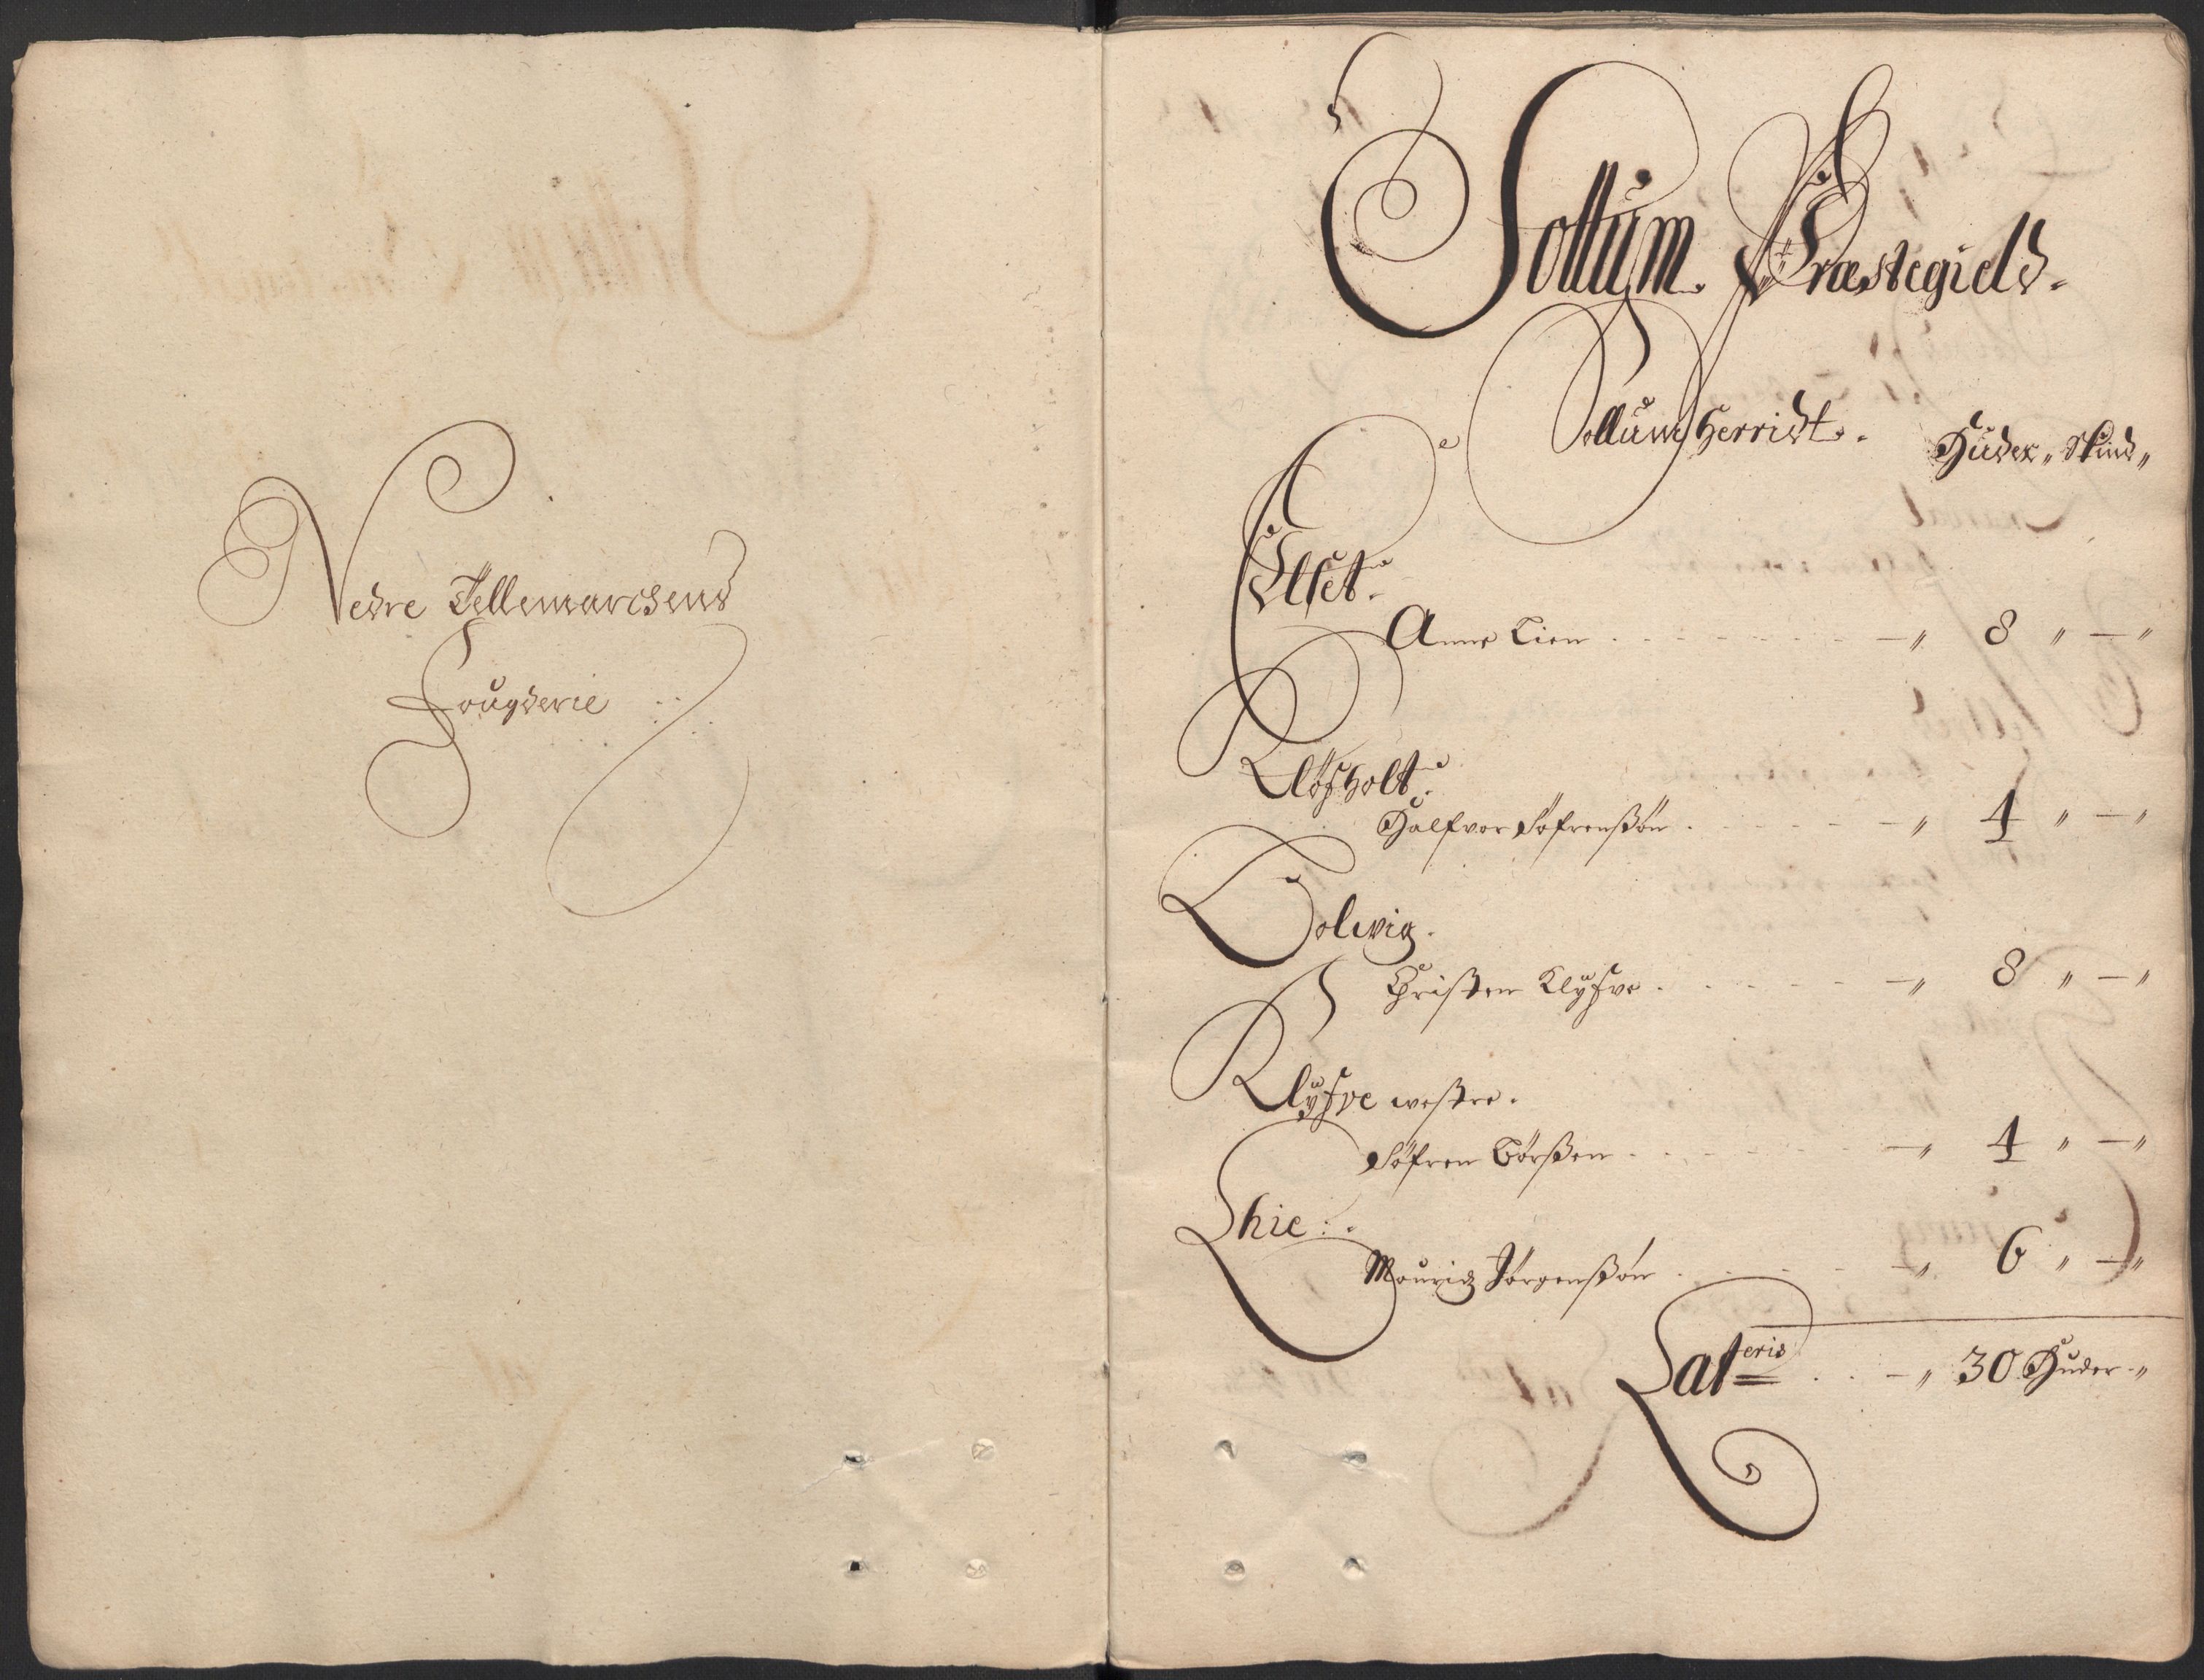 Nedre Tellemarckens
Fougderie
Sollum Præstegield.
Sollum Herridt. Huder " Skind "
Ellset.
Anne Lien . . . . . . . . — " 8 " — "
Kløfholt.
Halfvor Søfrenssøn . . . . . . — " 4 " — "
Solwig.
Christen Klyfve . . . . . . — " 8 " — "
Klyfve westre.
Søfren Børssen . . . . . . — " 4 " — "
Shie . .
Mouritz Jørgenssøn . . . . . — " 6 " — "
Lateris . . — " 30 Huder — "